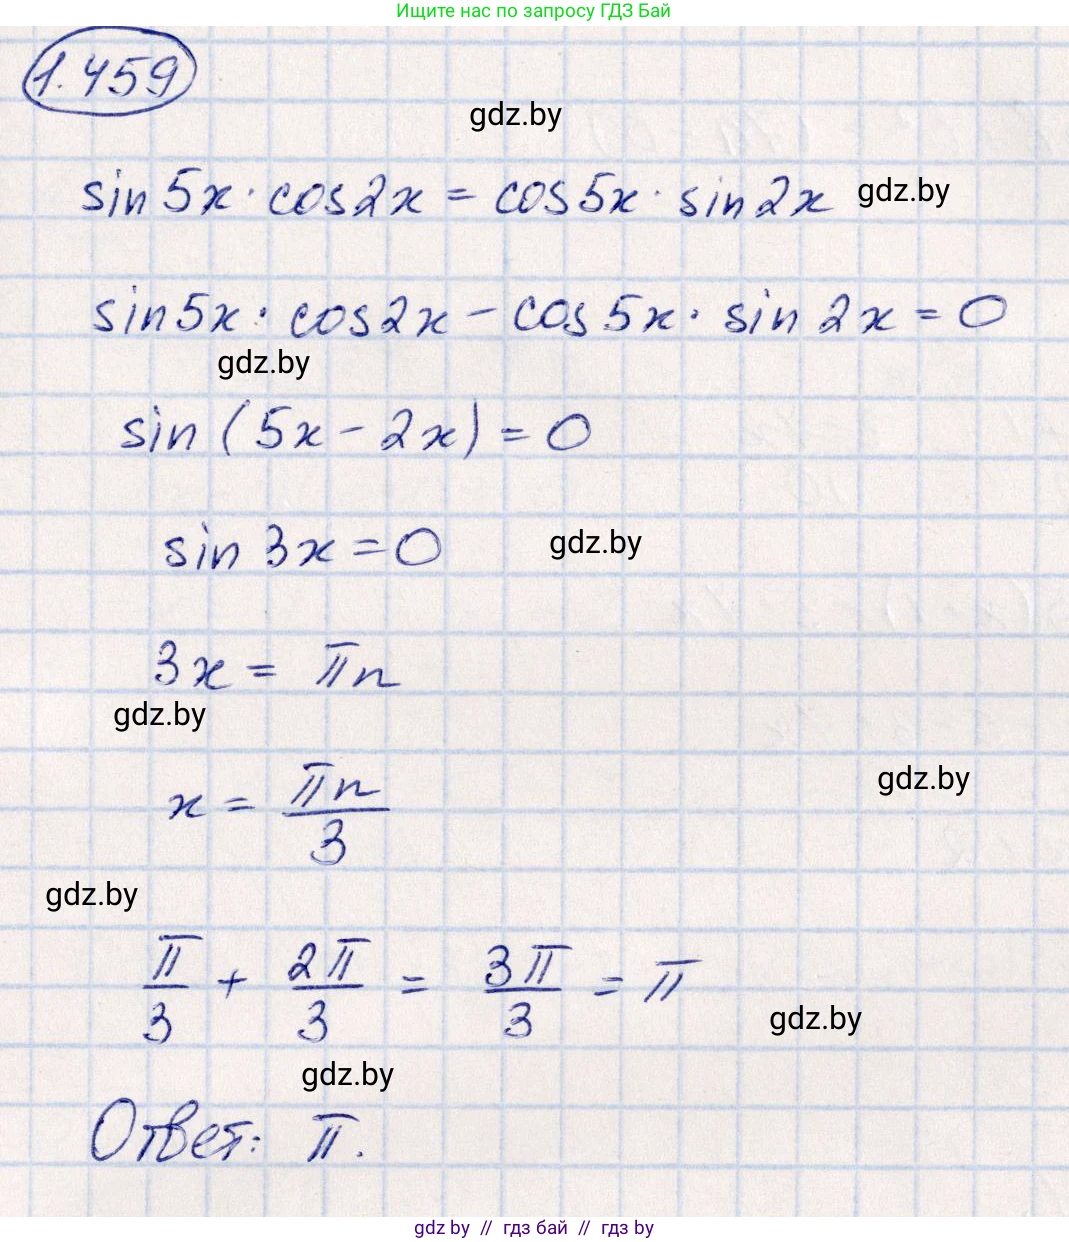 Ищите нас по запросу ГДЗ Бай
1.459
gdz.by
sin 5x · cos 2x = cos 5x · sin 2x gdz.by
sin 5x · cos 2x - cos 5x · sin 2x = 0
gdz.by
sin (5x - 2x) = 0
sin 3x = 0 gdz.by
3x = πn
gdz.by
x = πn/3 gdz.by
gdz.by
π/3 + 2π/3 = 3π/3 = π
gdz.by
gdz.by
Ответ: π.
gdz by // гдз бай // gdz by